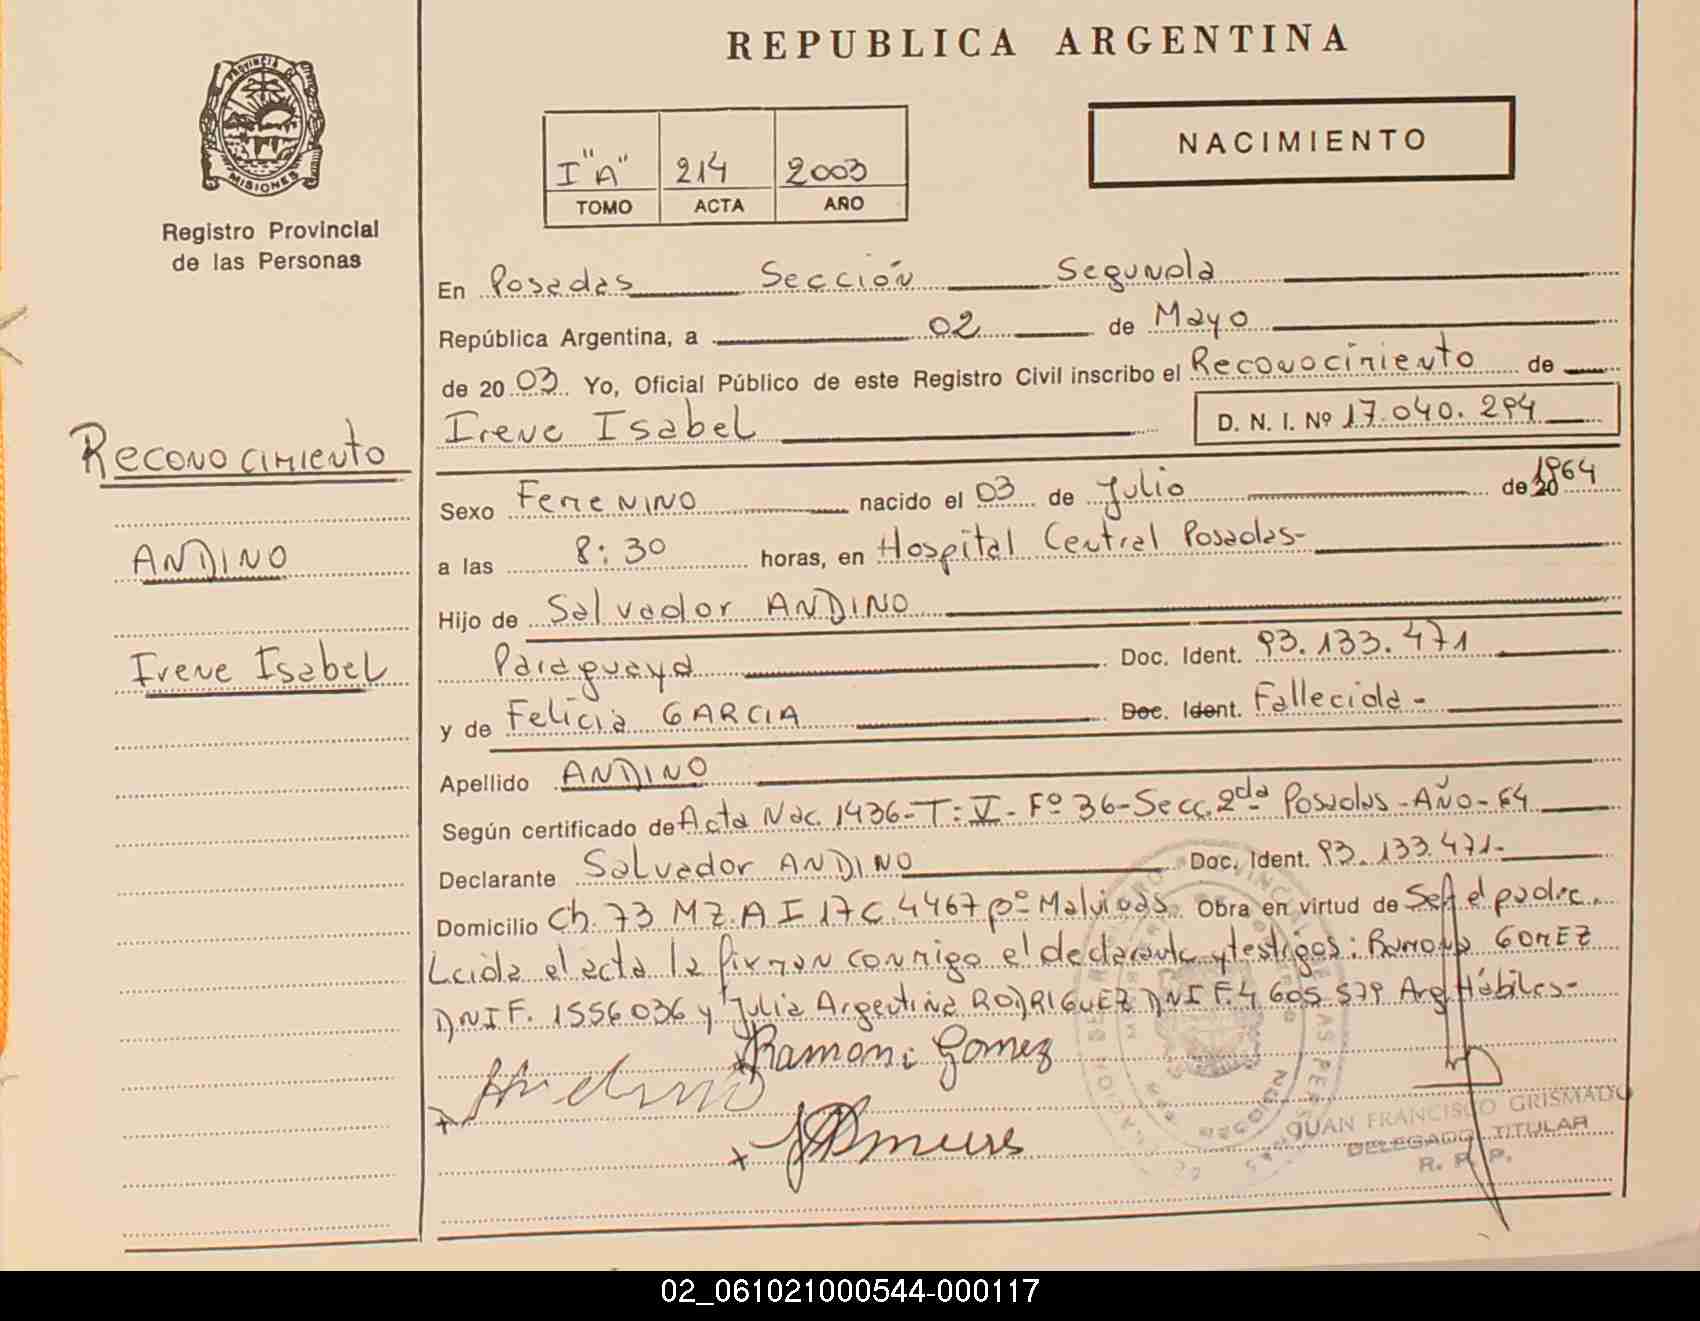 REPUBLICA ARGENTINA
PROVINCIA DE
MISIONES
Registro Provincial
de las Personas
I "A" 214 2003
TOMO ACTA AÑO
NACIMIENTO
En Posadas Sección Segunda
República Argentina, a 02 de Mayo
de 2003 Yo, Oficial Público de este Registro Civil inscribo el Reconocimiento de
Irene Isabel D. N. I. Nº 17.040.294
Reconocimiento
ANDINO
Irene Isabel
Sexo Femenino nacido el 03 de Julio de 20 1964
a las 8:30 horas, en Hospital Central Posadas-
Hijo de Salvador ANDINO
Paraguaya Doc. Ident. 93.133.471
y de Felicia GARCIA Doc. Ident. Fallecida-
Apellido ANDINO
Según certificado de Acta Nac. 1436-T:V-Fº 36-Secc. 2da Posadas-Año-64
Declarante Salvador ANDINO Doc. Ident. 93.133.471-
Domicilio Ch. 73 MZ. A I 17 C. 4467 Bº Malvinas Obra en virtud de Ser el padre.
Leida el acta la firman conmigo el declarante y testigos: Ramona GOMEZ
DNI F. 1556036 y Julia Argentina RODRIGUEZ DNI F. 4 605 579 Arg Hábiles-
Ramona Gomez
JUAN FRANCISCO GRISMADO
DELEGADO TITULAR
R. P. P.
02_061021000544-000117